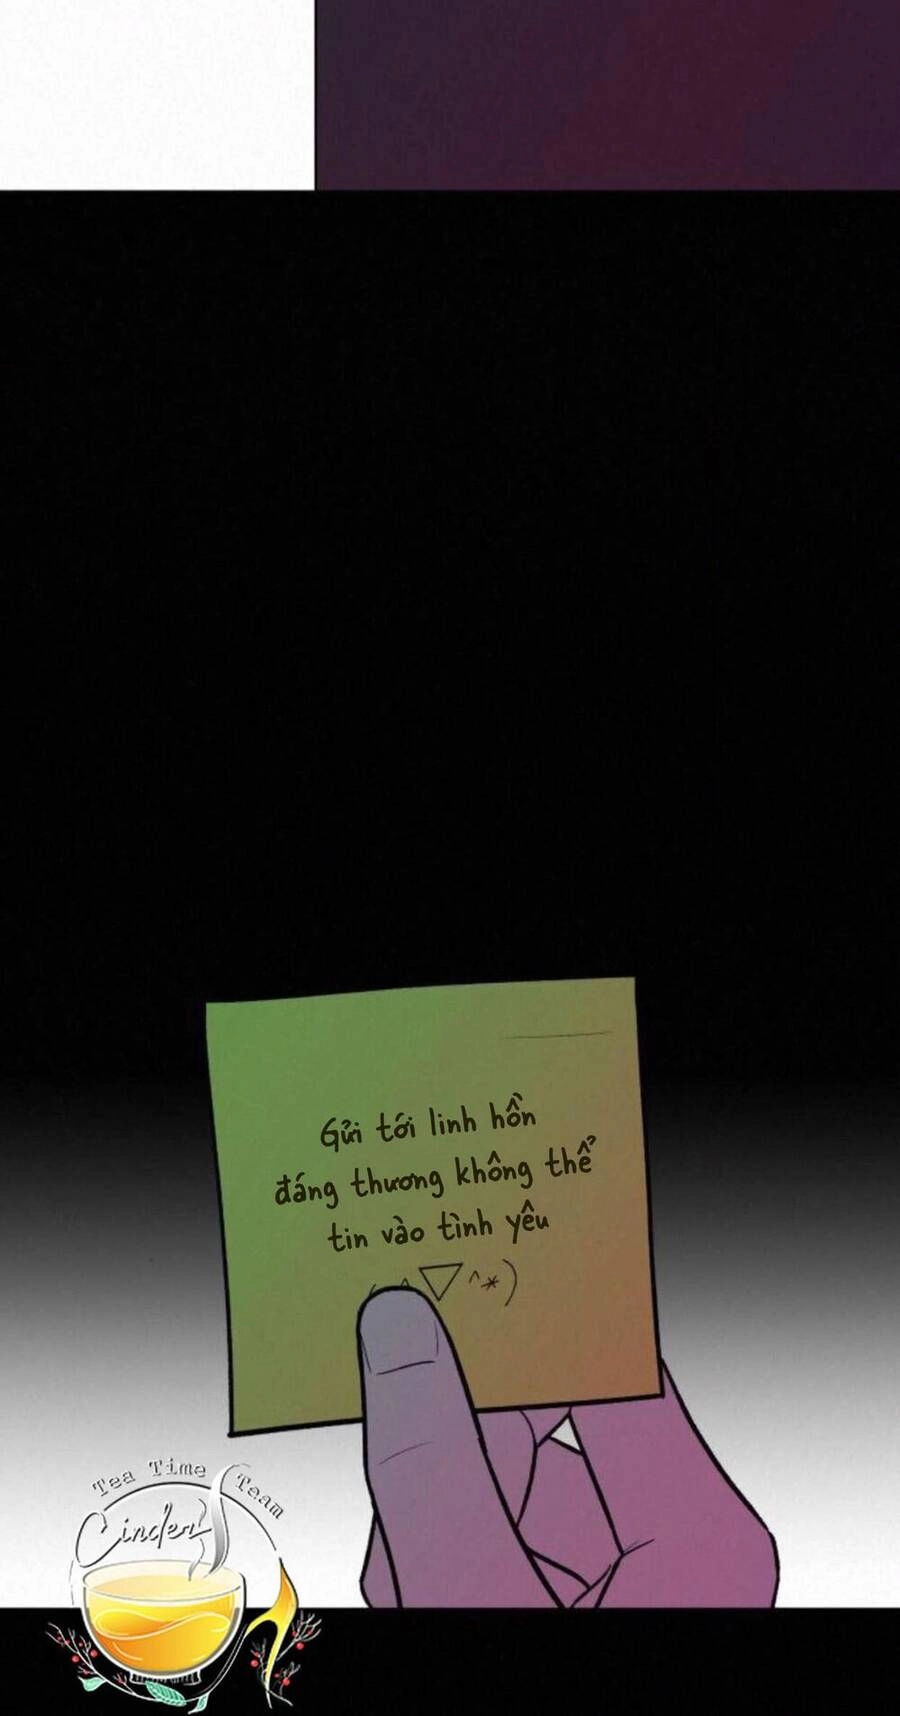 Gửi tới linh hồn
đáng thương không thể
tin vào tình yêu
(^▽^*)
Tea Time Team
Cinder